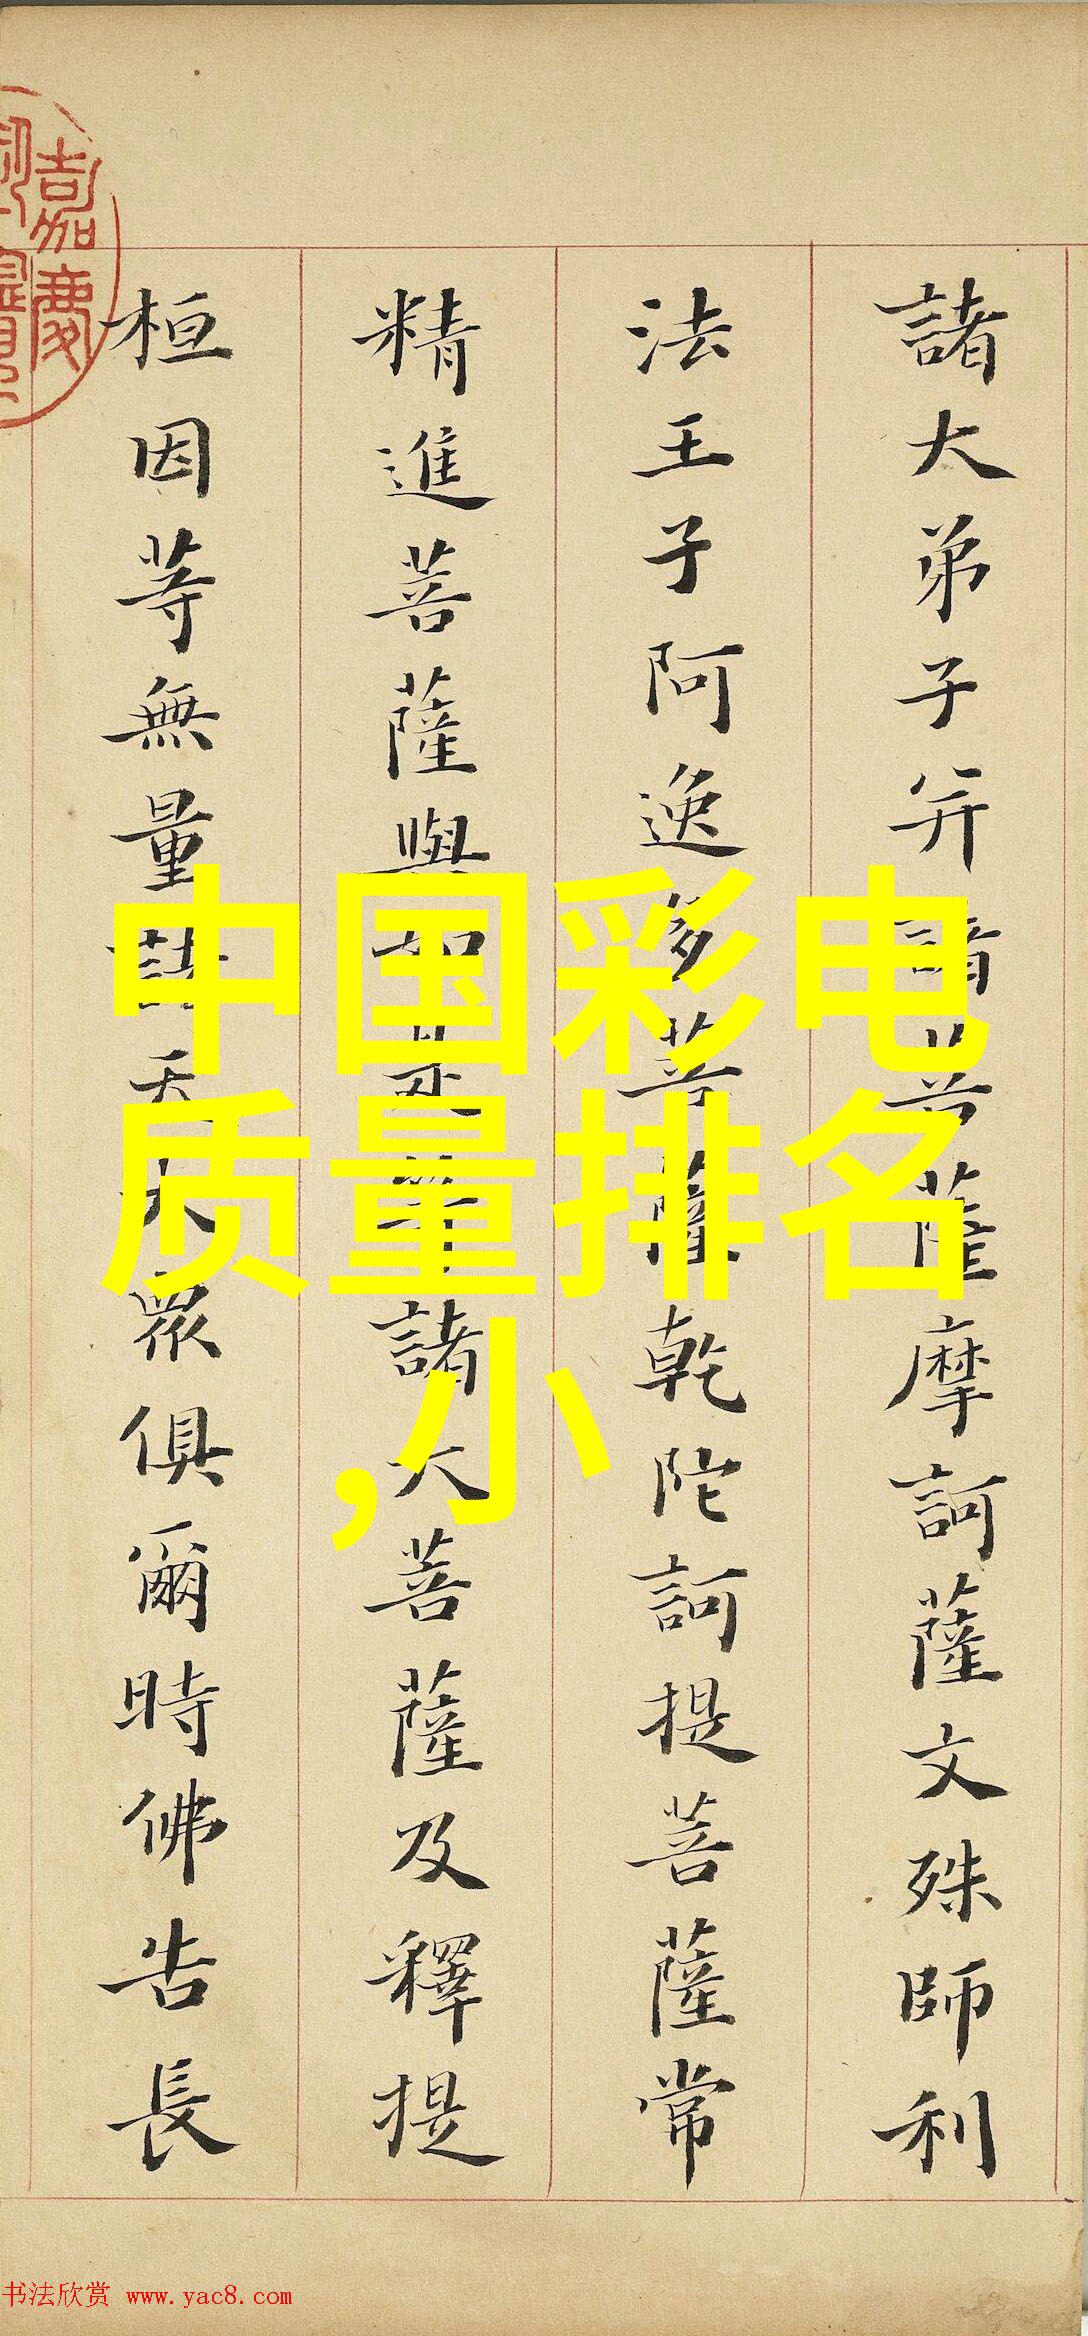 諸大弟子并諸菩薩摩訶薩文殊師利
法王子阿逸多菩薩乾陀訶提菩薩常
精進菩薩與如是等諸大菩薩及釋提
桓因等無量諸天大眾俱爾時佛告長
嘉慶
中国彩电
质量排名
,小
书法欣赏 www.yac8.com